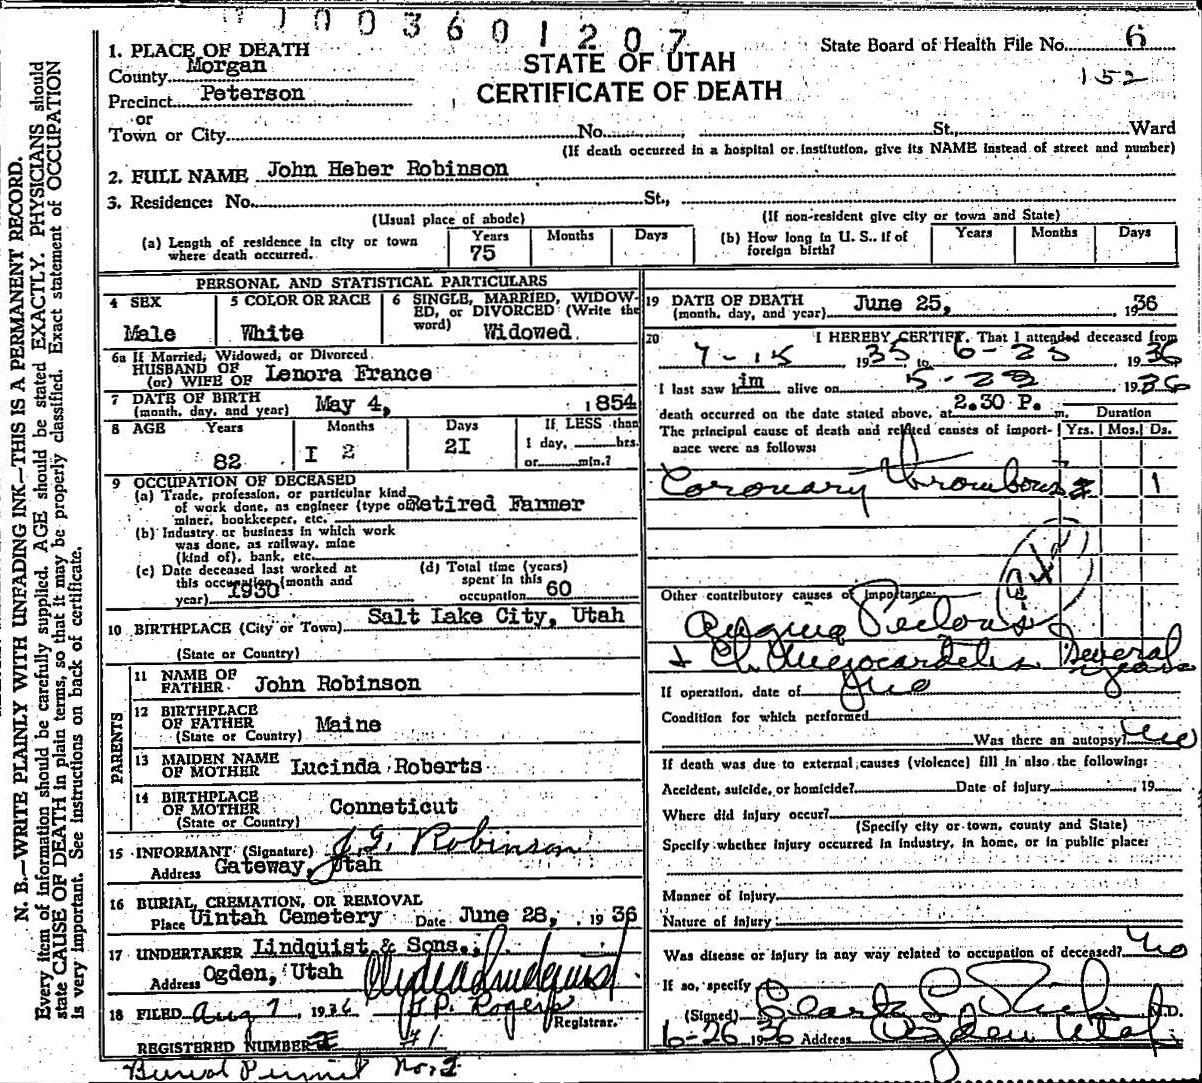 1003601207
1. PLACE OF DEATH
County Morgan
Precinct Peterson
or
Town or City No. St., Ward
STATE OF UTAH
CERTIFICATE OF DEATH
State Board of Health File No. 6
152
(If death occurred in a hospital or institution, give its NAME instead of street and number)
2. FULL NAME John Heber Robinson
3. Residence: No. St.,
(Usual place of abode) (If non-resident give city or town and State)
(a) Length of residence in city or town where death occurred. Years 75 Months Days
(b) How long in U. S., if of foreign birth? Years Months Days
PERSONAL AND STATISTICAL PARTICULARS
4 SEX Male
5 COLOR OR RACE White
6 SINGLE, MARRIED, WIDOWED, or DIVORCED (Write the word) Widowed
6a If Married, Widowed, or Divorced
HUSBAND OF
(or) WIFE OF Lenora France
7 DATE OF BIRTH
(month, day, and year) May 4, 1854
8 AGE Years 82 Months I 2 Days 2I If LESS than
1 day, hrs.
or min.?
9 OCCUPATION OF DECEASED
(a) Trade, profession, or particular kind
of work done, as engineer (type of Retired Farmer
miner, bookkeeper, etc.
(b) Industry or business in which work
was done, as railway, mine
(kind of), bank, etc.
(c) Date deceased last worked at
this occupation (month and
year) 1930
(d) Total time (years)
spent in this
occupation 60
10 BIRTHPLACE (City or Town) Salt Lake City, Utah
(State or Country)
PARENTS
11 NAME OF
FATHER John Robinson
12 BIRTHPLACE
OF FATHER Maine
(State or Country)
13 MAIDEN NAME
OF MOTHER Lucinda Roberts
14 BIRTHPLACE
OF MOTHER Conneticut
(State or Country)
15 INFORMANT (Signature) J. G. Robinson
Address Gateway, Utah
16 BURIAL, CREMATION, OR REMOVAL
Place Uintah Cemetery Date June 28, 1936
17 UNDERTAKER Lindquist & Sons.,
Address Ogden, Utah Clyde Lindquist
18 FILED Aug 7, 1936 J. P. Rogers
Registrar.
REGISTERED NUMBER 71
Burial Permit No. 2
19 DATE OF DEATH
(month, day, and year) June 25, 1936
20 I HEREBY CERTIFY, That I attended deceased from
7-15 1935 to 6-25 1936
I last saw him alive on 5-28 1936
death occurred on the date stated above, at 2.30 P. m. Duration
The principal cause of death and related causes of importance were as follows: Yrs. Mos. Ds.
Coronary Thrombosis 1
Other contributory causes of importance:
Angina Pectoris
+ Ch. Myocarditis Several years
If operation, date of no
Condition for which performed
Was there an autopsy? No
If death was due to external causes (violence) fill in also the following:
Accident, suicide, or homicide? Date of injury , 19
Where did injury occur?
(Specify city or town, county and State)
Specify whether injury occurred in industry, in home, or in public place:
Manner of injury
Nature of injury
Was disease or injury in any way related to occupation of deceased? No
If so, specify
(Signed) Rich M.D.
6-26 1936 Address Ogden Utah
N. B.—WRITE PLAINLY WITH UNFADING INK—THIS IS A PERMANENT RECORD.
Every item of information should be carefully supplied. AGE should be stated EXACTLY. PHYSICIANS should
state CAUSE OF DEATH in plain terms, so that it may be properly classified. Exact statement of OCCUPATION
is very important. See instructions on back of certificate.